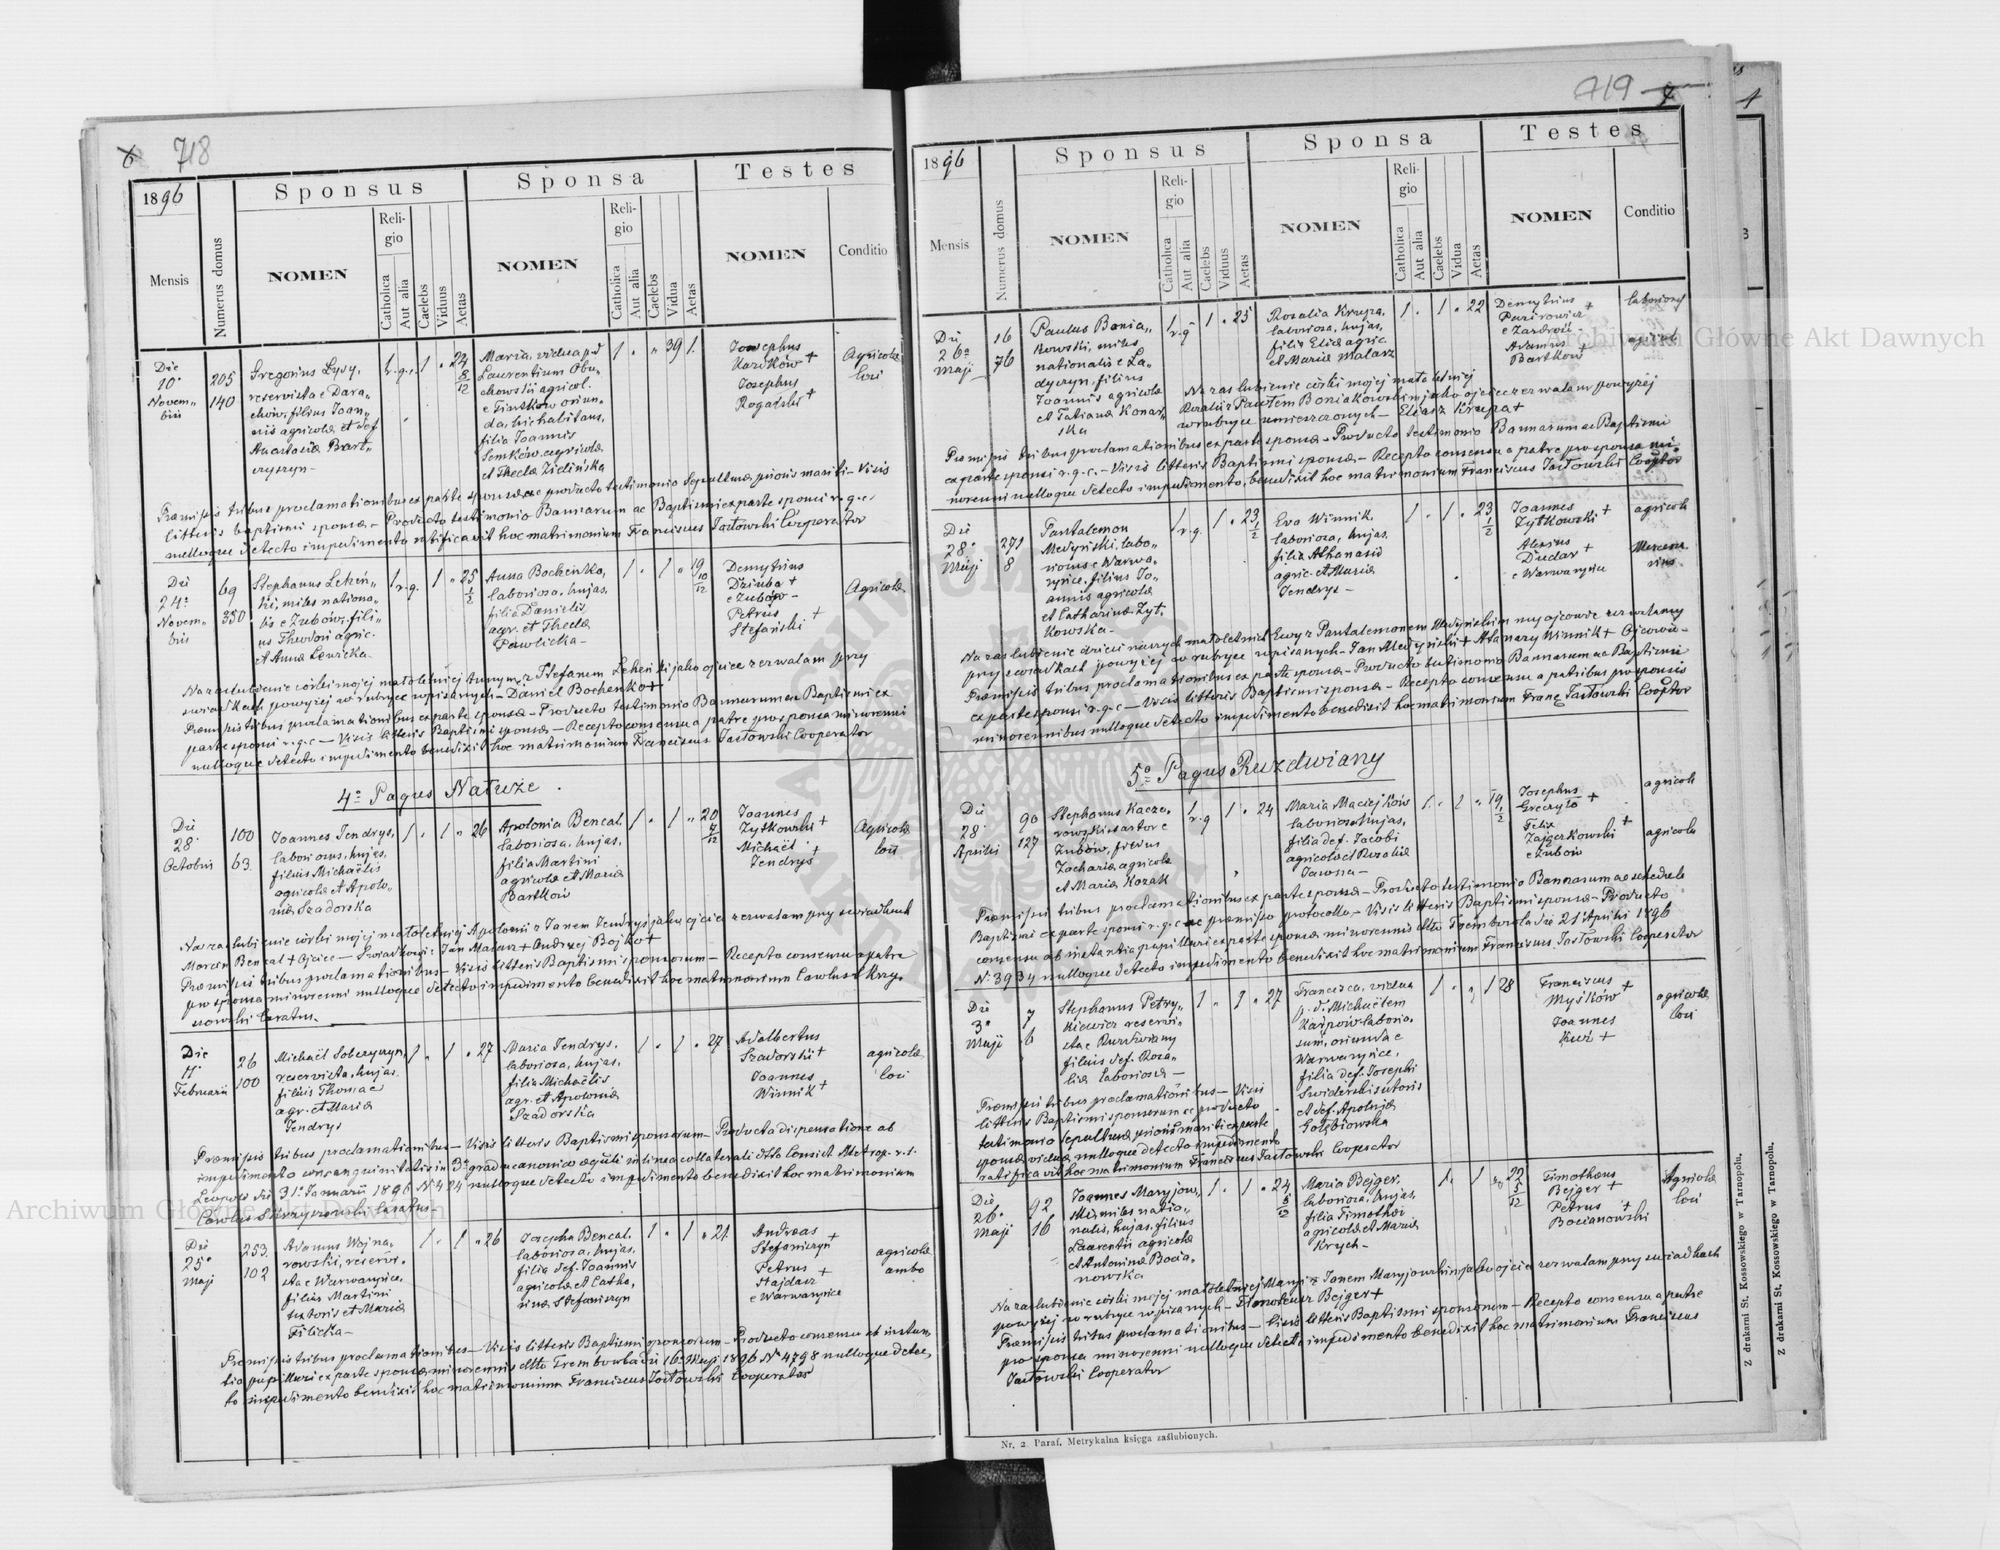 6 718
1896
Sponsus
Sponsa
Testes
Mensis
Numerus domus
NOMEN
Religio
Catholica
Aut alia
Caelebs
Viduus
Aetas
NOMEN
Religio
Catholica
Aut alia
Caelebs
Vidua
Aetas
NOMEN
Conditio
Die
10a
Novem-
bris
205
140
Gregorius Lysy,
reservista e Dara-
chów, filius Joan-
nis agricolæ et def
Anastasiæ Bart-
r.g.c. 1 " 24 8/12
Maria, vidua p.d
Laurentium Obu-
chowski agricol.
e Tiutków oriun-
da, hic habitans,
filia Joannis
Semków agricolæ
et Theclæ Zielińska
1 " " 39 1.
Josephus
Karków +
Josephus
Rogalski +
Agricolæ
loci
Præmissis tribus proclamationibus ex parte sponsæ ac producto testimonio Sepulturæ prioris mariti - Visis
litteris baptismi sponsæ - Producto testimonio Bannorum ac Baptismi ex parte sponsi r.g.c.
nulloque detecto impedimento ratificavit hoc matrimonium Franciscus Jastowski Cooperator
Die
24a
Novem-
bris
69
350
Stephanus Leheń-
ki, miles nationa-
lis e Zubów, fili-
us Theodori agric.
et Anna Lewicka
1 r.g. 1 " 25 1/2
Anna Bochenko,
laboriosa, hujas,
filia Danielis
agr. et Theclæ
Pawlicka -
1 " 1 " 19 10/12
Demytrius
Dziuba +
e Zubów -
Petrus
Stefański +
Agricolæ
Na zaslubienie córki mojej małoletniej Anny z Stefanem Leheńki jako ojciec zezwalam przy
swiadkach powyżej w rubryce wpisanych - Daniel Bochenko +
Præmissis tribus proclamationibus ex parte sponsæ - Producto testimonio Bannorum ac Baptismi ex
parte sponsi r.g.c - Visis litteris Baptismi sponsæ - Recepto consensu a patre pro sponsa minorenni
nulloque detecto impedimento benedixit hoc matrimonium Franciscus Jastowski Cooperator
4o Pagus Nałuże
Die
28a
Octobris
100
63.
Joannes Jendrys,
laboriosus, hujas,
filius Michaëlis
agricolæ et Apolo-
niæ Szadorska
1 " 1 " 26
Apolonia Bencal,
laboriosa, hujas,
filia Martini
agricolæ et Mariæ
Bartków
1 " 1 " 20 7/12
Joannes
Zytkowski +
Michaël
Jendrys +
Agricolæ
loci
Na zaslubienie córki mojej małoletniej Apolonii z Janem Jendrys jako ojciec zezwalam przy swiadkach
Marcin Bencal + Ojciec - Swiadkowie: Jan Mazur + Andrzej Bojko +
Præmissis tribus proclamationibus - Visis litteris Baptismi sponsorum - Recepto consensu a patre
pro sponsa minorenni nulloque detecto impedimento benedixit hoc matrimonium Carolus Skrzy-
nowski Curatus
Die
11a
Februarii
26
100
Michaël Soberyszyn,
reservista, hujas
filius Thomae
agr. et Mariæ
Jendrys
1 " 1 " 27
Maria Jendrys,
laboriosa, hujas,
filia Michaëlis
agr. et Apoloniæ
Szadorska
1 " 1 " 27
Adalbertus
Szadorski +
Joannes
Winnik +
agricolæ
loci
Præmissis tribus proclamationibus - Visis litteris Baptismi sponsorum - Producta dispensatione ab
impedimento consanguinitatis in 3o gradu canonico æquali in linea collaterali dtto Consist. Metrop. r.l.
Leopoli die 31a Januarii 1896 N 424 nulloque detecto impedimento benedixit hoc matrimonium
Carolus Skrzynowski Curatus
Die
25a
Maji
253.
102
Adamus Wojna-
rowski, reservi-
sta e Warwaryńce
filius Martini
sutoris et Mariæ
Filicka -
1 " 1 " 26
Josepha Bencal,
laboriosa, hujas,
filia def. Joannis
agricolæ et Catha-
rinæ Stefaniszyn
1 " 1 " 21
Andreas
Stefaniszyn +
Petrus
Hajdasz +
e Warwaryńce
agricolæ
ambo
Præmissis tribus proclamationibus - Visis litteris Baptismi sponsorum - Producto consensu ab instan-
tia pupillari ex parte sponsæ minorennis dtto Trembowla die 16a Maji 1896 N 4798 nulloque detec-
to impedimento benedixit hoc matrimonium Franciscus Jastowski Cooperator
719 7
1896
Sponsus
Sponsa
Testes
Mensis
Numerus domus
NOMEN
Religio
Catholica
Aut alia
Caelebs
Viduus
Aetas
NOMEN
Religio
Catholica
Aut alia
Caelebs
Vidua
Aetas
NOMEN
Conditio
Die
26a
Maji
16
76
Paulus Bonia-
kowski, miles
nationalis e La-
dyczyn, filius
Joannis agricolæ
et Tatianæ Konar-
ska
1 r.g 1 " 25
Rosalia Krupa,
laboriosa, hujas,
filia Eliæ agric.
et Mariæ Malarz
1. " 1 " 22
Demytrius
e Zazdrość
Adamus
Bartków +
agricola
Na zaslubienie córki mojej małoletniej
Rozalii z Pawłem Boniakowskim jako ojciec zezwalam powyżej
w rubryce umieszczonych - Eliasz Krupa +
Præmissis tribus proclamationibus ex parte sponsæ - Producto testimonio Bannorum ac Baptismi
ex parte sponsi r.g.c. - Visis litteris Baptismi sponsæ - Recepto consensu a patre pro sponsa mi-
norenni nulloque detecto impedimento, benedixit hoc matrimonium Franciscus Jastowski Cooptor
Die
28a
Maji
271
8
Pantalemon
Medyński, labo-
riosus e Warwa-
ryńce, filius Jo-
annis agricolæ
et Catharinæ Zyt-
kowska -
1 r.g. 1 " 23 1/2
Eva Winnik,
laboriosa, hujas,
filia Athanasii
agric. et Mariæ
Jendrys -
1 " 1 " 23 1/2
Joannes
Zytkowski +
Alexius
Dudar +
e Warwaryńce
agricola
Mercena-
rius
Na zaslubienie dzieci naszych małoletnich Ewy z Pantalemonem Medyńskim my ojcowie zezwalamy
przy swiadkach powyżej w rubryce wpisanych - Jan Medyński + Atanazy Winnik + Ojcowie -
Præmissis tribus proclamationibus ex parte sponsæ - Producto testimonio Bannorum ac Baptismi
ex parte sponsi r.g.c - Visis litteris Baptismi sponsæ - Recepto consensu a patribus pro sponsis
minorennibus nulloque detecto impedimento benedixit hoc matrimonium Franc Jastowski Cooptor
5o Pagus Ruzdwiany
Die
28a
Aprilis
90
127
Stephanus Kacza-
rowski, sartor e
Zubów, filius
Zachariæ agricolæ
et Mariæ Kozak
1 r.g 1 " 24
Maria Maciejków
laboriosa, hujas,
filia def. Jacobi
agricolæ et Rosaliæ
1. " 1 " 19 1/2
Josephus
Greczyło +
Felix
Zajączkowski +
e Zubów
agricola
agricola
Præmissis tribus proclamationibus ex parte sponsæ - Producto testimonio Bannorum ac schedula
Baptismi ex parte sponsi r.g.c ac præmisso protocollo - Visis litteris Baptismi sponsæ - Producto
consensu ab instantia pupillari ex parte sponsæ minorennis dtto Trembowla die 21 Aprilis 1896
N. 3934 nulloque detecto impedimento benedixit hoc matrimonium Franciscus Jastowski Cooperator
Die
3a
Maji
7
6
Stephanus Petry-
kiewicz reservi-
sta e Ruzdwiany
filius def. Rosa-
liæ laboriosæ -
1 " 1 " 27
Francisca, vidua
p. d. Michaëlem
Karpów laborio-
sum, oriunda e
Warwaryńce,
filia def. Josephi
Swiderski sutoris
et def. Apoloniæ
Gołębiowska
1 " " 1 28
Franciscus
Myśków +
Joannes
Kuź +
agricolæ
loci
Præmissis tribus proclamationibus - Visis
litteris Baptismi sponsorum ac producto
testimonio Sepulturæ prioris mariti ex parte
sponsæ viduæ nulloque detecto impedimento
ratificavit hoc matrimonium Franciscus Jastowski Cooperator
Die
26a
Maji
92
16
Joannes Maryjow-
ski, miles natio-
nalis, hujas, filius
Laurentii agricolæ
et Antoninæ Bocia-
nowska
1. " 1 " 24 5/12
Maria Bejger,
laboriosa, hujas,
filia Timothei
agricolæ et Mariæ
Krych -
1. " 1 " 22 5/12
Timotheus
Bejger +
Petrus +
Bocianowski
Agricolæ
loci
Na zaslubienie córki mojej małoletniej Maryi z Janem Maryjowskim jako ojciec zezwalam przy swiadkach
powyżej w rubryce wpisanych - Timoteusz Bejger +
Præmissis tribus proclamationibus - Visis litteris Baptismi sponsorum - Recepto consensu a patre
pro sponsa minorenni nulloque detecto impedimento benedixit hoc matrimonium Franciscus
Jastowski Cooperator
Nr. 2. Paraf. Metrykalna księga zaślubionych.
Z drukarni St. Kossowskiego w Tarnopolu.
Z drukarni St. Kossowskiego w Tarnopolu.
Archiwum Główne Akt Dawnych
Archiwum Główne Akt Dawnych